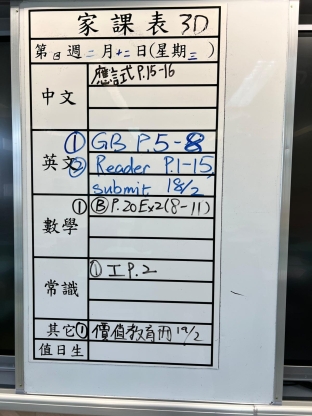 家課表 3D
第四週二月十二日(星期三)
中文
應試 P.15-16
英文
① GB P.5-8
② Reader P.1-15
submit 18/2
數學
① Ⓑ P.20 Ex2(8-11)
常識
① 工 P.2
其它
① 價值教育冊 19/2
值日生